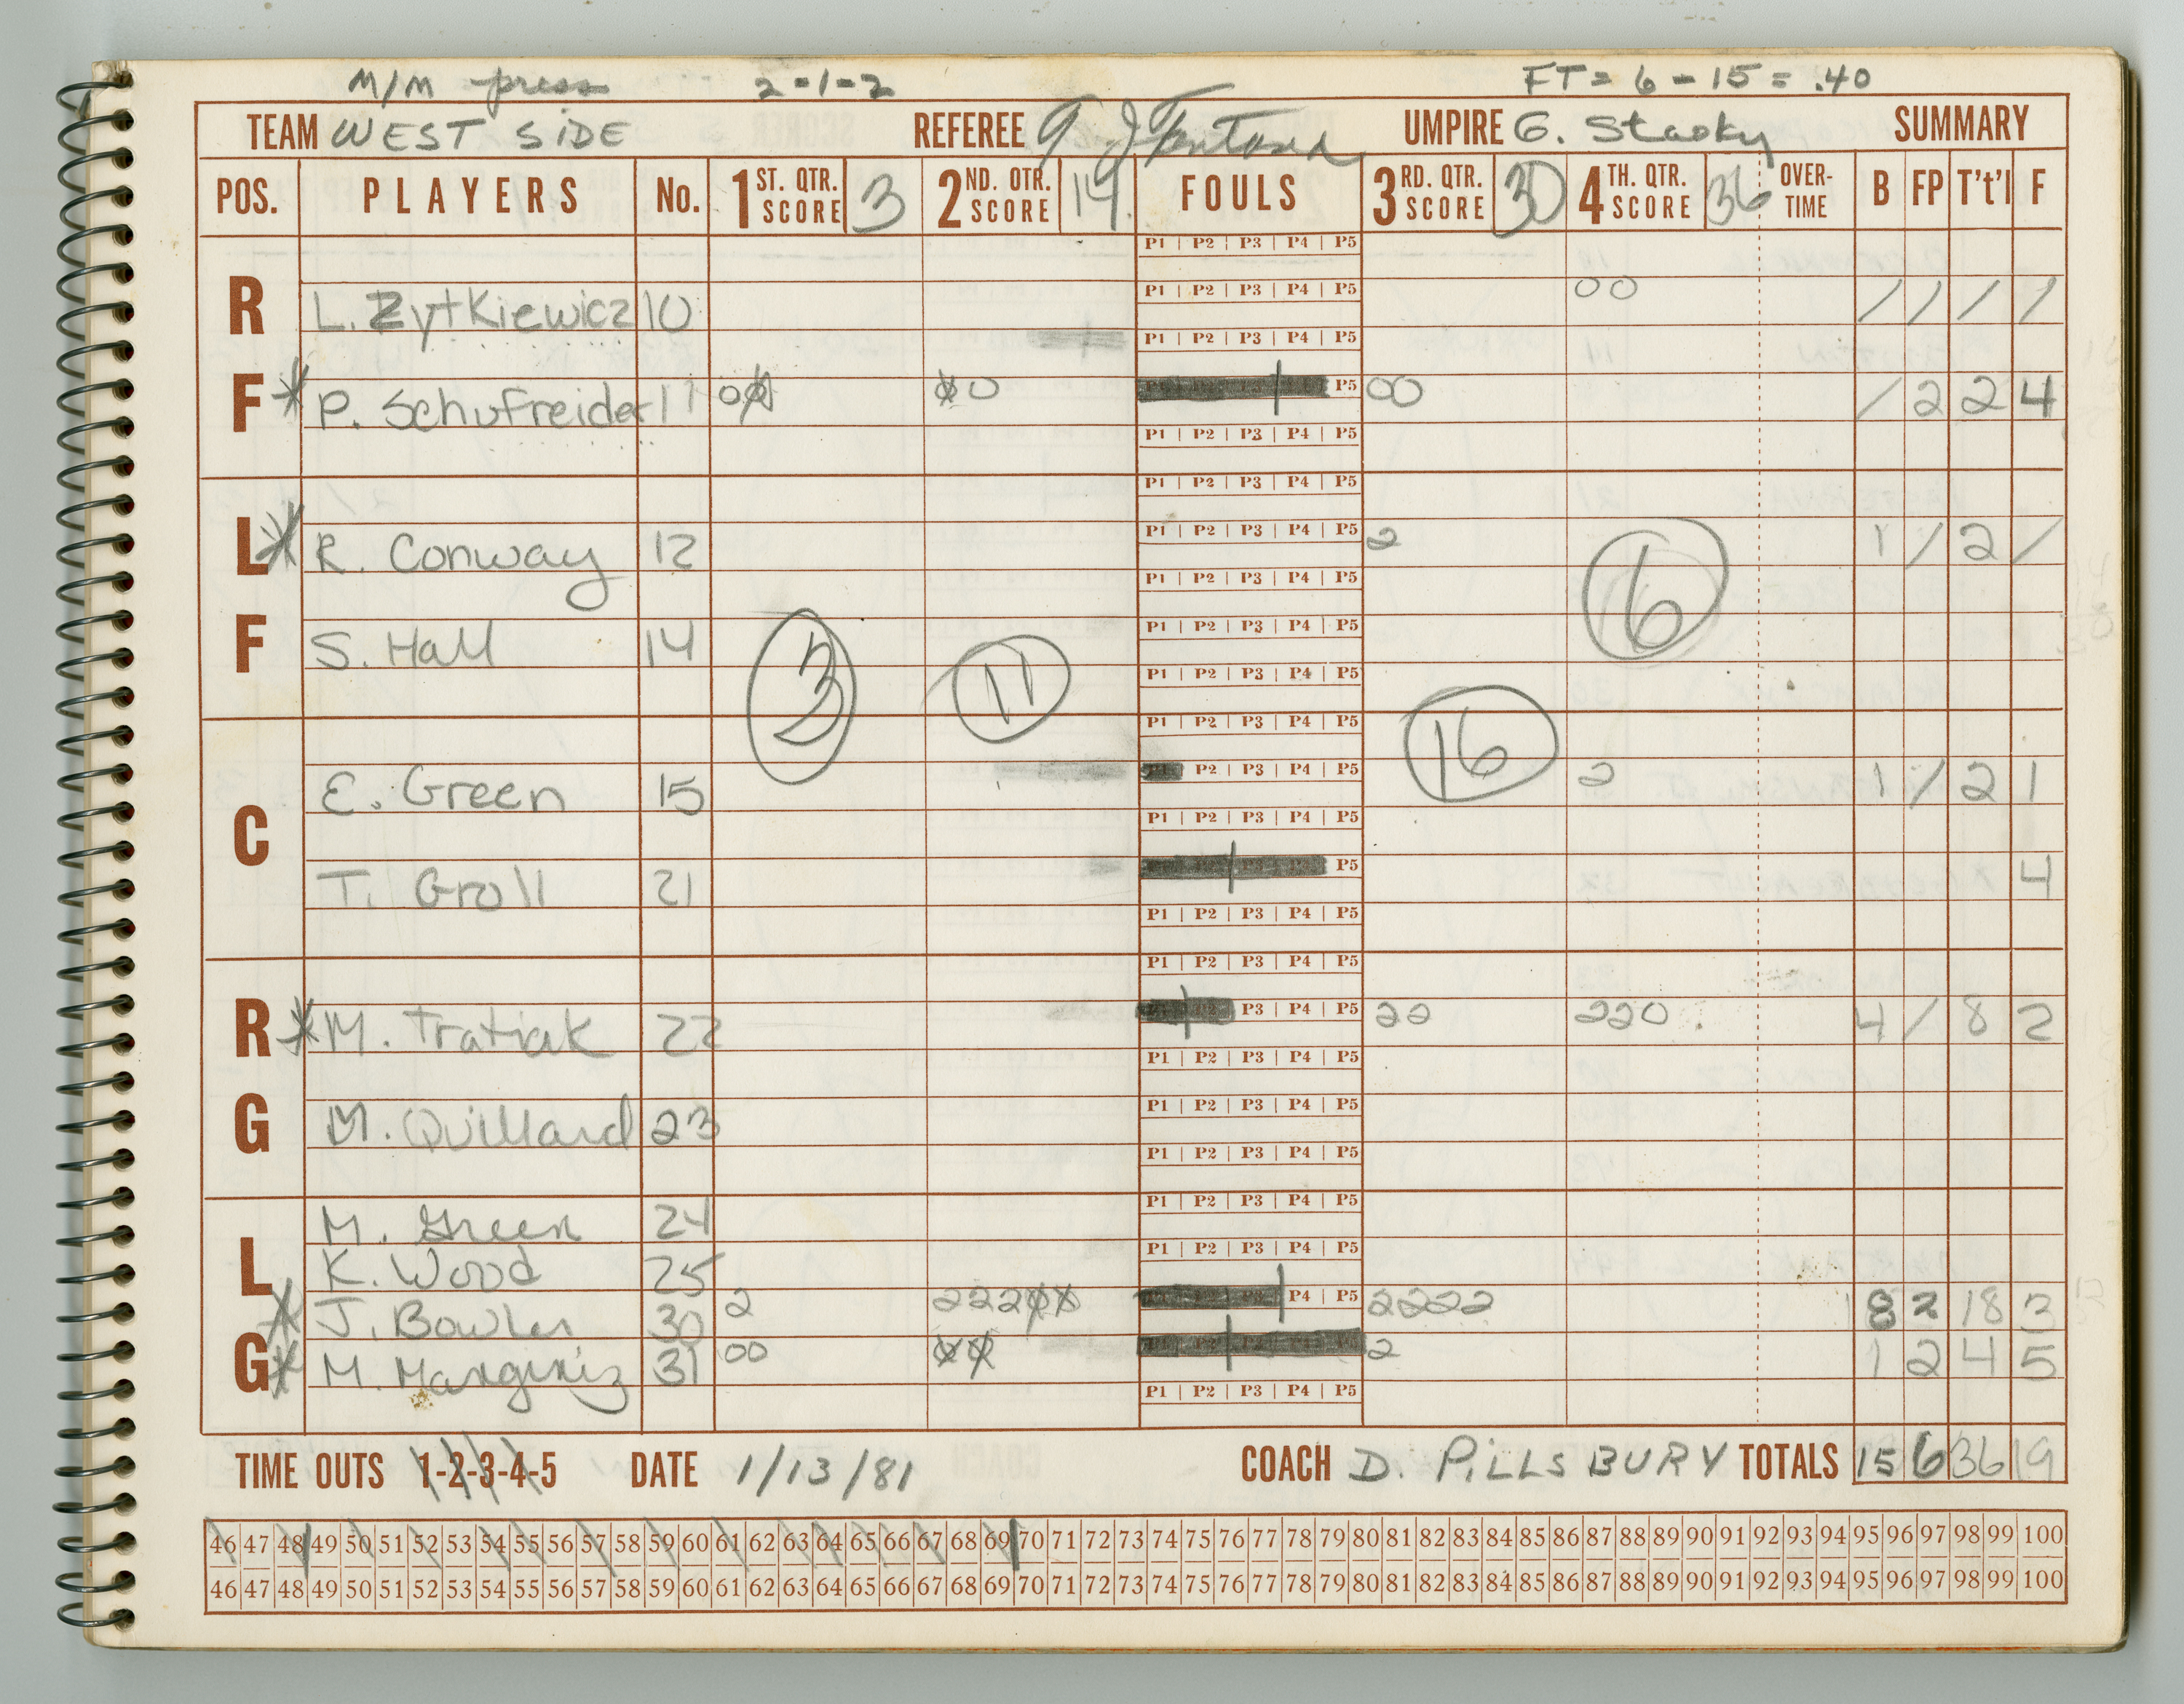 M/M press 2-1-2 FT = 6 - 15 = .40
TEAM WEST SIDE REFEREE UMPIRE G. Stasky SUMMARY
POS. PLAYERS No. 1ST. QTR. SCORE 3 2ND. QTR. SCORE 14 FOULS 3RD. QTR. SCORE 30 4TH. QTR. SCORE 36 OVER-TIME B FP T't'l F
P1 P2 P3 P4 P5
RF L. Zytkiewicz 10 P1 P2 P3 P4 P5 00 / / / /
P1 P2 P3 P4 P5
* P. Schufreider 11 0Ø Ø0 P5 00 / 2 2 4
P1 P2 P3 P4 P5
P1 P2 P3 P4 P5
LF * R. Conway 12 P1 P2 P3 P4 P5 2 1 / 2 /
P1 P2 P3 P4 P5
S. Hall 14 P1 P2 P3 P4 P5 6
3 11 P1 P2 P3 P4 P5
P1 P2 P3 P4 P5 16
C E. Green 15 P1 P2 P3 P4 P5 2 1 / 2 1
P1 P2 P3 P4 P5
T. Groll 21 P5 4
P1 P2 P3 P4 P5
P1 P2 P3 P4 P5
RG * M. Tratiak 22 P3 P4 P5 22 220 4 / 8 2
P1 P2 P3 P4 P5
M. Quillard 23 P1 P2 P3 P4 P5
P1 P2 P3 P4 P5
LG M. Green 24 P1 P2 P3 P4 P5
K. Wood 25 P1 P2 P3 P4 P5
* J. Bowler 30 2 222ØØ P4 P5 2222 8 2 18 3
* M. 31 00 ØØ 2 1 2 4 5
P1 P2 P3 P4 P5
TIME OUTS 1-2-3-4-5 DATE 1/13/81 COACH D. PILLSBURY TOTALS 15 6 36 19
46 47 48 49 50 51 52 53 54 55 56 57 58 59 60 61 62 63 64 65 66 67 68 69 70 71 72 73 74 75 76 77 78 79 80 81 82 83 84 85 86 87 88 89 90 91 92 93 94 95 96 97 98 99 100
46 47 48 49 50 51 52 53 54 55 56 57 58 59 60 61 62 63 64 65 66 67 68 69 70 71 72 73 74 75 76 77 78 79 80 81 82 83 84 85 86 87 88 89 90 91 92 93 94 95 96 97 98 99 100